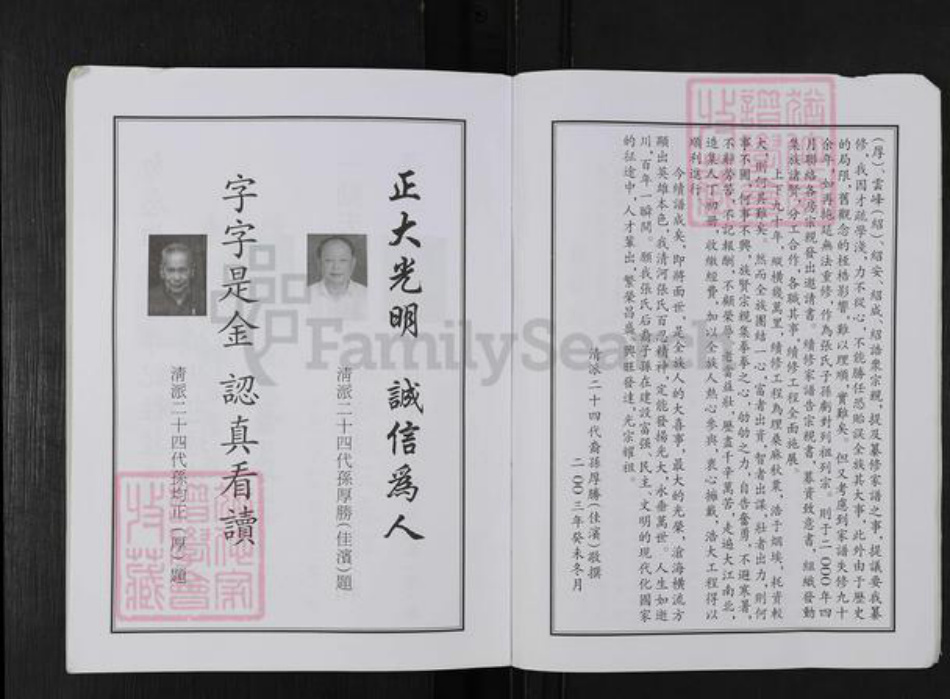 (厚)、雲峰(紹)、紹安、紹成、紹語衆宗親,提及纂修家譜之事,提議要我纂
修,我因才疏學淺,力不從心,不能勝任恐貽誤全族其大事,此外由于歷史
的局限,舊觀念的桎梏影響,難以理順,實難矣。但又考慮到家譜失修九十
余年,如再拖延無法重修,作為張氏子孫劇對列祖列宗。則于二000年四
月聯絡各房宗親發出邀請書。續修家譜告宗親書、募資致意書,組織發動
集族諸賢,分工合作,各職其事,續修工程全面施展。
上下九十年,縱橫幾萬里,續修工程為理桑麻秋業,浩于烟埃,耗資較
大,則何其難矣。然而全族團結一心,富者出資,智者出謀,壯者出力,則何
事不圖,何事不興,族賢宗親集拳拳之心,劬劬之力,自告奮勇,不避寒暑,
不辭勞苦,不記報酬,不顧榮辱,老當益壯,歷盡千辛萬苦,走遍大江南北,
造集人丁物册,收繳經費,加以全族人熱心參與,衷心擁戴,浩大工程得以
順利進行。
今續譜成矣,即將面世,是全族人的大喜事,最大的光榮,滄海橫流方
顯出英雄本色,我清河張氏百忍精神,定能發揚光大,永垂萬世。人生如逝
川,百年一瞬間。願我張氏后裔子孫在建設富强、民主、文明的現代化國家
的征途中,人才輩出,繁榮昌盛。興旺發達,光宗耀祖。
清派二十四代裔孫厚勝(佳濱)敬撰
二00三年癸未冬月
正大光明 誠信為人
清派二十四代孫厚勝(佳濱)題
字字是金 認真看讀
清派二十四代孫均正(厚)題
FamilySearch